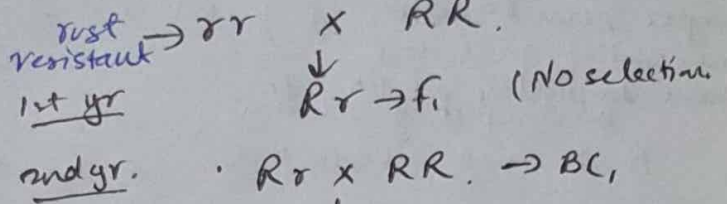 rust
resistant → rr × RR.
↓
1st yr Rr → f₁ (No selection.
2nd yr. Rr × RR. → BC₁